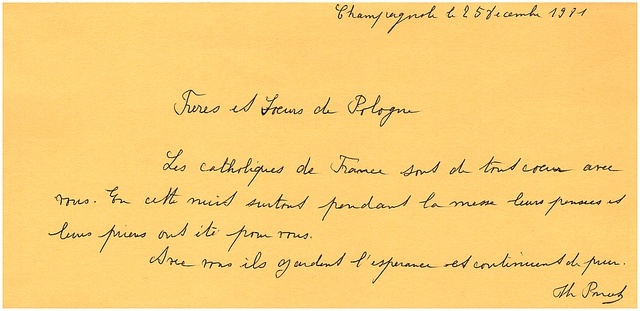 Champagnole le 25 décembre 1981
Frères et Soeurs de Pologne
Les catholiques de France sont de tout coeur avec
vous. En cette nuit surtout pendant la messe leurs pensées et
leurs prières ont été pour vous.
Avec vous ils gardent l'espérance et continuent de prier.
Th